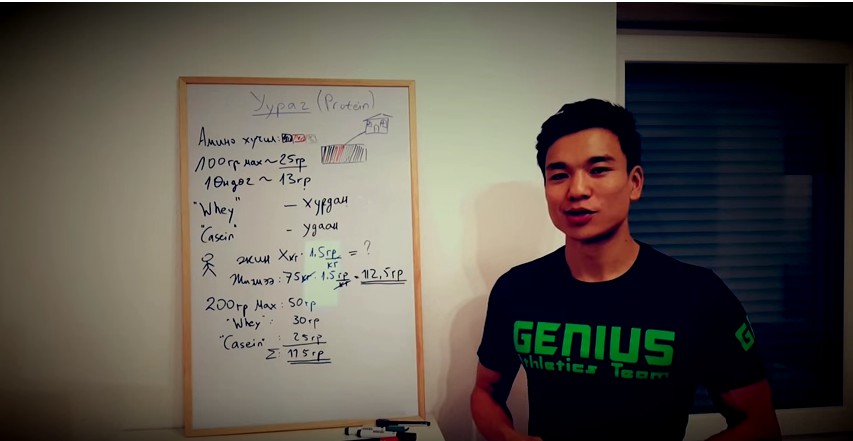 Уураг (Protein)
Амино хүчил:
100гр мах ~ 25гр
1 өндөг ~ 13гр
"Whey" — хурдан
"Casein" - удаан
жин Xкг · 1.5гр/кг = ?
Жишээ: 75кг · 1.5гр/кг = 112,5гр
200гр мах: 50гр
"Whey": 30гр
"Casein": 25гр
Σ: 115гр
GENIUS
Athletics Team
G